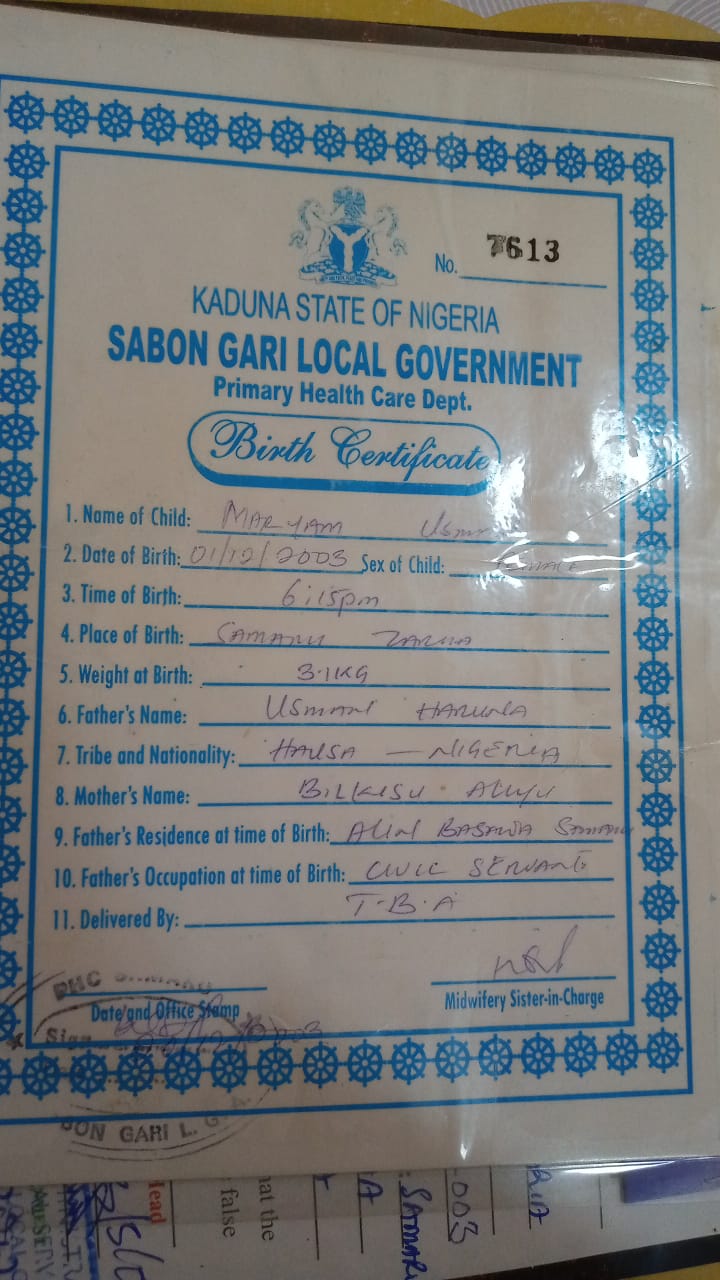 No. 7613
KADUNA STATE OF NIGERIA
SABON GARI LOCAL GOVERNMENT
Primary Health Care Dept.
Birth Certificate
1. Name of Child: MARYAM
2. Date of Birth: 01/12/2003 Sex of Child: Female
3. Time of Birth: 6:15pm
4. Place of Birth: SAMARU ZARIA
5. Weight at Birth: 3.1KG
6. Father's Name: USMAN HARUNA
7. Tribe and Nationality: HAUSA — NIGERIA
8. Mother's Name: BILKISU ALIYU
9. Father's Residence at time of Birth: BASAWA SAMARU
10. Father's Occupation at time of Birth: CIVIC SERVANT
11. Delivered By: T.B.A
Date and Office Stamp
Midwifery Sister-in-Charge
PHC SAMARU
GARI L.G.A.
Head
false
hat the
SAMARU
003
RIA